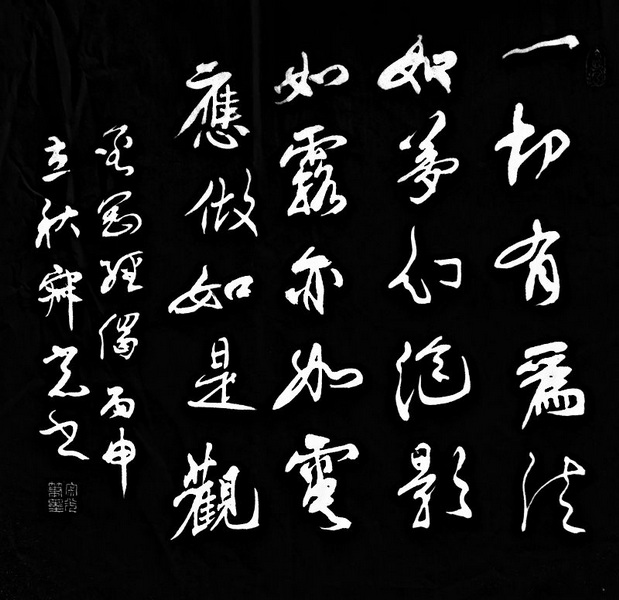 一切有爲法
如夢幻泡影
如露亦如電
應做如是觀
金剛經偈 丙申
立秋 书